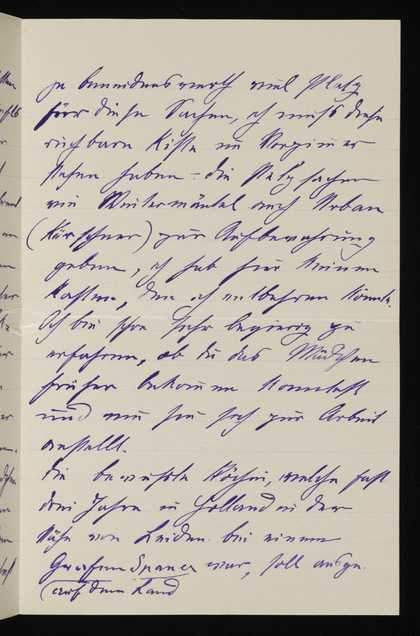 zu beneidenswerth viel Platz
für diese Sachen, ich muß diese
Kiste im Vorzimmer
stehen haben – die Pelzsachen
wie Wintermäntel auch Urban
(Kürschner) zur Aufbewahrung
geben, ich hab hier keinen
Kasten, den ich entbehren könnte.
Ich bin schon sehr begierig zu
erfahren, ob du das Mädchen
früher bekommen konntest
und wie sie sich zur Arbeit
anstellt.
Die bewußte Köchin, welche fast
drei Jahre in Holland in der
Nähe von Leiden bei einem
Grafen war, soll
auf dem Land